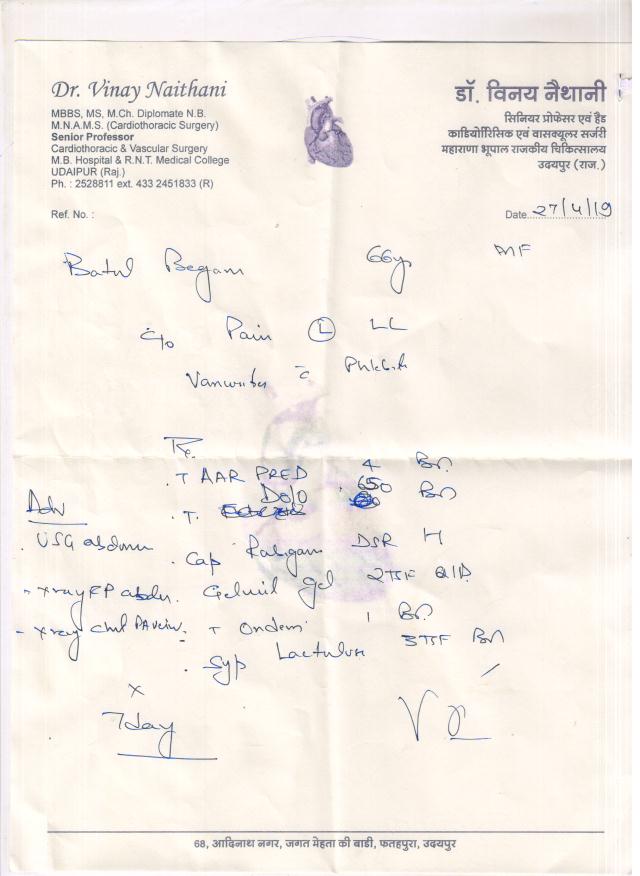 Dr. Vinay Naithani
MBBS, MS, M.Ch. Diplomate N.B.
M.N.A.M.S. (Cardiothoracic Surgery)
Senior Professor
Cardiothoracic & Vascular Surgery
M.B. Hospital & R.N.T. Medical College
UDAIPUR (Raj.)
Ph. : 2528811 ext. 433 2451833 (R)
डॉ. विनय नैथानी
सिनियर प्रोफेसर एवं हैड
काडियोरिसिक एवं वासक्यूलर सर्जरी
महाराणा भूपाल राजकीय चिकित्सालय
उदयपुर (राज.)
Ref. No. :
Date 27/4/19
Batul Begam 66y MF
c/o Pain L LL
c̄
Rx.
T AAR PRED 4 BD
T. Dolo 650 BD
Cap DSR H
Gelusil gel 2TSF QID
T Ondem 1 BD
Syp Lactulose 3TSF BD
Adv
USG abdomen
- xray FP abdm.
- xray chest PA view.
x
7day
68, आदिनाथ नगर, जगत मेहता की बाडी, फतहपुरा, उदयपुर